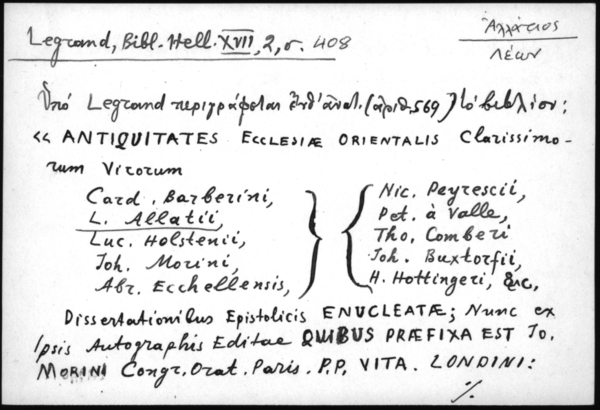 Legrand, Bibl. Hell. XVII, 2, σ. 408
Ἀλλάτιος
Λέων
Ὑπό Legrand περιγράφεται ἐνθ' ἀνωτ. (ἀριθ. 569) τό βιβλίον:
<< ANTIQUITATES ECCLESIÆ ORIENTALIS Clarissimo-
rum Virorum
Card. Barberini,
L. Allatii,
Luc. Holstenii,
Joh. Morini,
Abr. Ecchellensis,
Nic. Peyrescii,
Pet. à Valle,
Tho. Comberi
Joh. Buxtorfii,
H. Hottingeri, &c,
Dissertationibus Epistolicis ENUCLEATÆ; Nunc ex
Ipsis Autographis Editae QUIBUS PRÆFIXA EST Jo.
MORINI Congr. Orat. Paris. P.P. VITA. LONDINI:
·/.